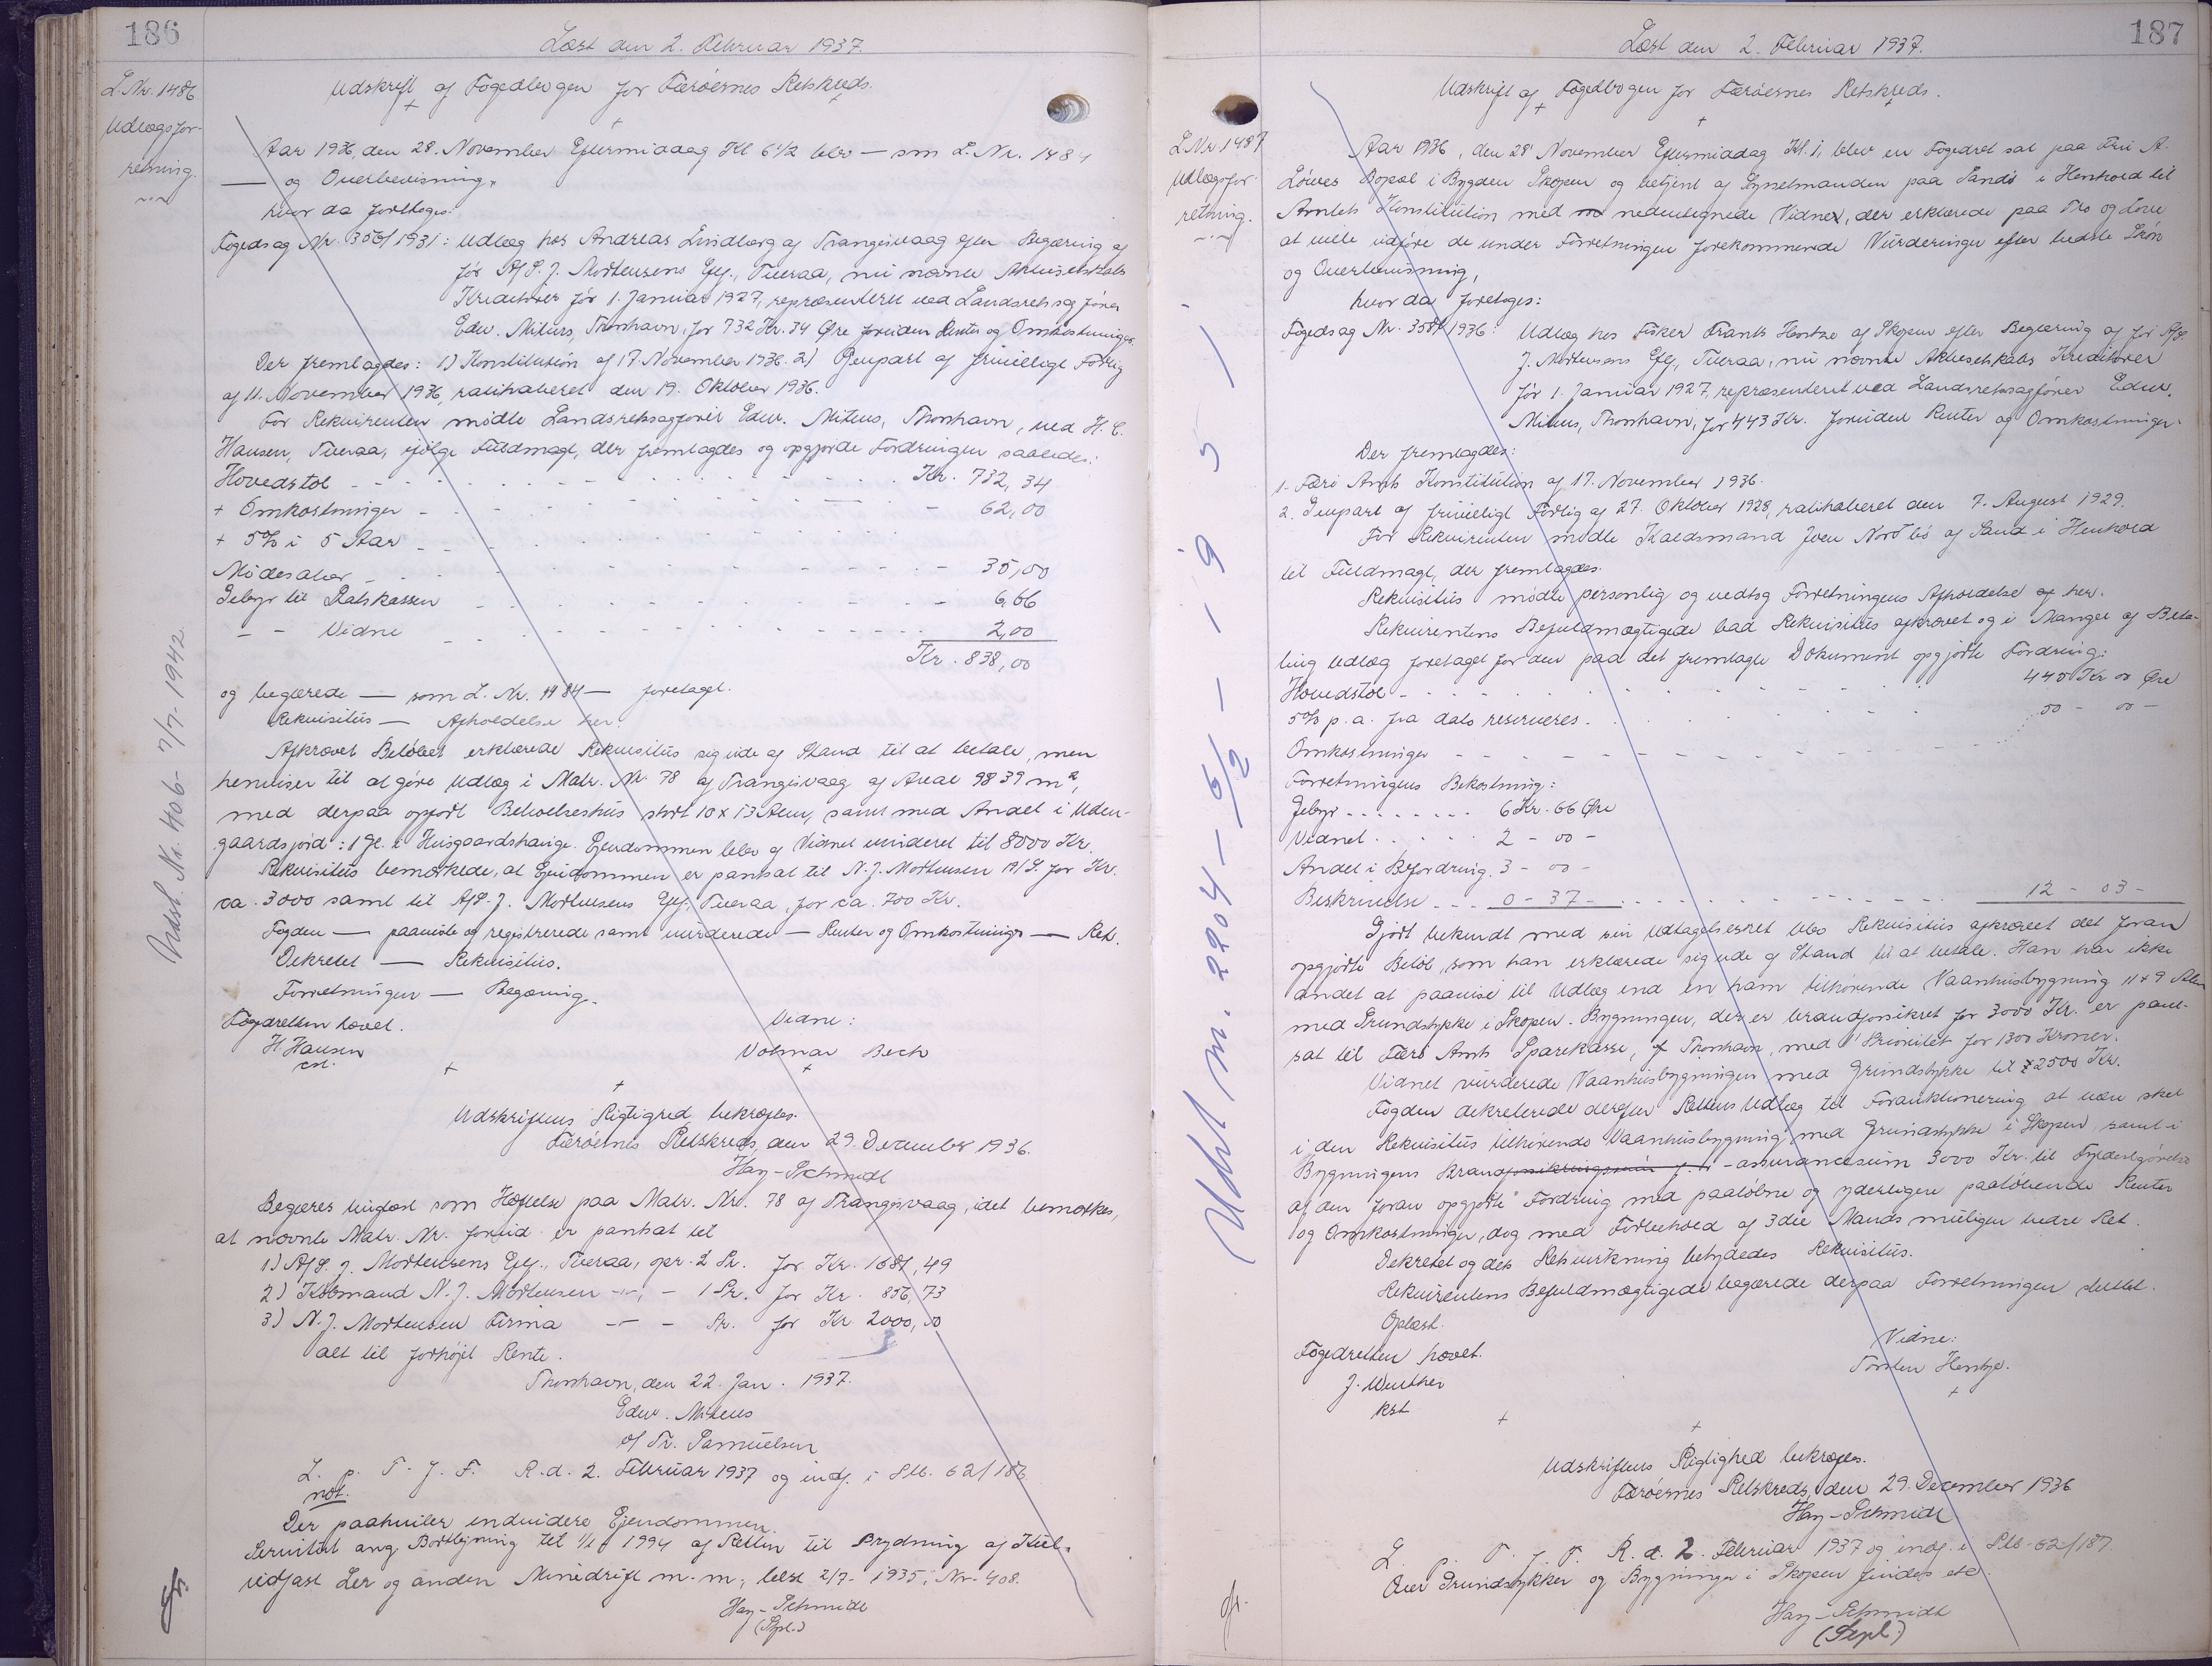 186
Læst den 2. Februar 1937.
L.Nr. 1486
Udlægsfor-
retning.
Udskrift af Fogedbogen for Færøernes Retskreds.
Aar 1936, den 28. November Eftermiddag Kl 6 1/2 blev — som L. Nr. 1484
— og Overbevisning,
hvor da foretoges:
Fogedsag Nr. 356/1931: Udlæg hos Andreas Lindberg af Trangisvaag efter Begæring af
for A/S. J. Mortensens Eftf., Tveraa, nu nævnte Aktieselskabs
Kreditorer før 1. Januar 1927, repræsenteret ved Landsretssagfører
Edw. Mitens, Thorshavn, for 732 Kr. 34 Øre foruden Renter og Omkostninger.
Der fremlagdes: 1) Konstitution af 17. November 1936. 2) Genpart af frivilligt Forlig
af 11. November 1936, ratihaberet den 19. Oktober 1936.
For Rekvirenten mødte Landsretssagfører Edw. Mitens, Thorshavn, ved H. C.
Hansen, Tveraa, ifølge Fuldmagt, der fremlagdes og opgjorde Fordringen saaledes:
Hovedstol - - - Kr. 732,34
+ Omkostninger - - - 62,00
+ 5% i 5 Aar - - -
Mødesalær - - - 35,00
Gebyr til Statskassen - - - 6,66
- - Vidne - - - 2,00
Kr. 838,00
og begærede — som L. Nr. 1484 — foretaget.
Rekvisitus — Afholdelse her.
Afkrævet Beløbet erklærede Rekvisitus sig ude af Stand til at betale, men
henviser til at gøre Udlæg i Matr. Nr. 78 af Trangisvaag af Areal 9839 m²,
med derpaa opført Beboelseshus stort 10 x 13 Alen, samt med Andel i Uden-
gaardsjord: 1 Gl. i Husgaardshauge. Ejendommen blev af Vidnet vurderet til 8000 Kr.
Rekvisitus bemærkede, at Ejendommen er pantsat til N. J. Mortensen A/S. for Kr.
ca. 3000 samt til A/S. J. Mortensens Eftf. Tveraa, for ca. 700 Kr.
Fogden — paaviste og registrerede samt vurderede — Renter og Omkostninger — Ret.
Dekretet — Rekvisitus.
Forretningen — Begæring.
Fogedretten hævet.
H Hansen
cst.
Vidne:
Volmar Bech
Udskriftens Rigtighed bekræftes.
Færøernes Retskreds, den 29. December 1936.
Hay-Schmidt
Begæres tinglæst som Hæftelse paa Matr. Nr. 78 af Trangisvaag, idet bemærkes,
at nævnte Matr. Nr. forud er pantsat til
1) A/S. J. Mortensens Eftf., Tveraa, opr. 2 Pr. for Kr. 1681,49
2) Købmand N. J. Mortensen -"- - 1 Pr. for Kr. 856,73
3) N. J. Mortensen Firma -"- - Pr. for Kr. 2000,00
alt til forhøjet Rente.
Thorshavn, den 22. Jan. 1937.
Edw. Mitens
v/ Fr. Samuelsen
L. p. T. f. F. R. d. 2. Februar 1937 og indf. i Ptb. 62/186
not.
Der paahviler endvidere Ejendommen.
Servitut ang. Bortlejning til 1/1 1994 af Retten til Brydning af Kul,
ildfast Ler og anden Minedrift m. m., læst 2/7- 1935, Nr. 408.
Hay-Schmidt
(Spl.)
Udsl. Nr. 406- 7/7. 1942.
187
Læst den 2. Februar 1937.
L.Nr. 1487
Udlægsfor-
retning.
Udskrift af Fogedbogen for Færøernes Retskreds.
Aar 1936, den 28 November Eftermiddag Kl. 1, blev en Fogedret sat paa Fru A.
Bopæl i Bygden Skopen og betjent af Sysselmanden paa Sandø i Henhold til
Amtets Konstitution med nedentegnede Vidne, der erklærede paa Tro og Love
at ville udføre de under Forretningen forekommende Vurderinger efter bedste Skøn
og Overbevisning,
hvor da foretoges:
Fogedsag Nr. 358/1936: Udlæg hos Fisker Frants Hentze af Skopen efter Begæring af for A/S.
J. Mortensens Eftf., Tveraa, nu nævnte Aktieselskabs Kreditorer
før 1. Januar 1927, repræsenteret ved Landsretssagfører Edw.
Mitens, Thorshavn, for 443 Kr. foruden Renter og Omkostninger.
Der fremlagdes:
1. Færø Amts Konstitution af 17. November 1936.
2. Genpart af frivilligt Forlig af 27. Oktober 1928, ratihaberet den 7. August 1929.
For Rekvirenten mødte Kaldsmand Joen Norðbø af Sand i Henhold
til Fuldmagt, der fremlagdes.
Rekvisitus mødte personlig og vedtog Forretningens Afholdelse her.
Rekvirentens Befuldmægtigede bad Rekvisitus afkrævet og i Mangel af Beta-
ling Udlæg foretaget for den paa det fremlagte Dokument opgjorte Fordring:
Hovedstol - - - 440 Kr 00 Øre
5% p. a. fra dato reserveres.
Omkostninger - - - 50 - 00 -
Forretningens Bekostning:
Gebyr ........ 6 Kr. 66 Øre
Vidnet . . . 2 - 00 -
Andel i Befordring. 3 - 00 -
Beskrivelse - - - 0 - 37 - - - - 12 - 03 -
Gjort bekendt med sin Udtagelsesret blev Rekvisitus afkrævet det foran
opgjorte Beløb, som han erklærede sig ude af Stand til at betale. Han har ikke
andet at paavise til Udlæg end en ham tilhørende Vaanhusbygning 11 x 9 Alen
med Grundstykke i Skopen. Bygningen, der er brandforsikret for 3000 Kr. er pant-
sat til Færø Amts Sparekasse, Thorshavn, med 1' Prioritet for 1300 Kroner.
Vidnet vurderede Vaanhusbygningen med Grundstykke til 2500 Kr.
Fogden dekreterede derefter Rettens Udlæg til Forauktionering at være sket
i den Rekvisitus tilhørende Vaanhusbygning med Grundstykke i Skopen, samt i
Bygningens Brandforsikringssum -assurancesum 3000 Kr. til Fyldestgørelse
af den foran opgjorte Fordring med paaløbne og yderligere paaløbende Renter
og Omkostninger, dog med Forbehold af 3die Mands muligen bedre Ret.
Dekretet og dets Retsvirkning betydedes Rekvisitus.
Rekvirentens Befuldmægtigede begærede derpaa Forretningen sluttet.
Oplæst.
Fogedretten hævet.
J. Winther
kst
Vidne:
Torsten Hentze.
Udskriftens Rigtighed bekræftes.
Færøernes Retskreds, den 29. December 1936
Hay-Schmidt
L. p. T. f. F. R. d. 2. Februar 1937 og indf. i Ptb. 62/187
Over Grundstykker og Bygninger i Skopen findes etc.
Hay-Schmidt
(Spl.)
Udsl nr. 2204 - 5/2 - 1951.